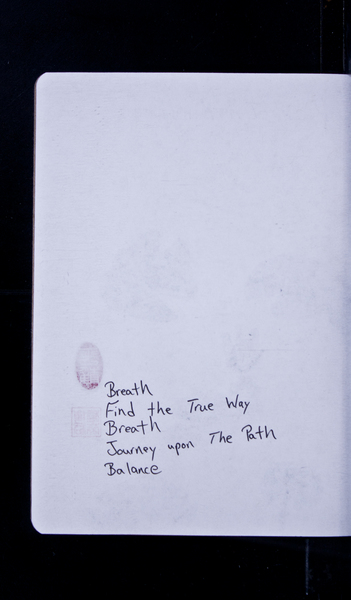 Breath
Find the True Way
Breath
Journey upon The Path
Balance